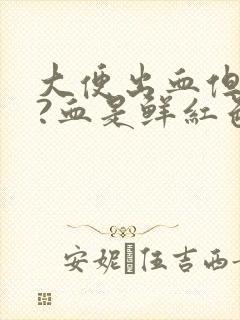 大便出血但
?血是鲜红色
安妮 住吉西